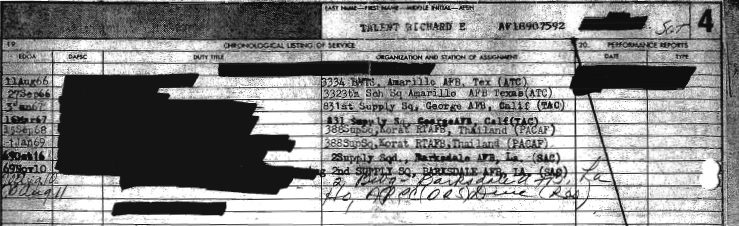 LAST NAME—FIRST NAME—MIDDLE INITIAL—AFSN
TALENT RICHARD E AF18907592
4
19. CHRONOLOGICAL LISTING OF SERVICE 20. PERFORMANCE REPORTS
EDCSA DAFSC DUTY TITLE ORGANIZATION AND STATION OF ASSIGNMENT DATE TYPE
11Aug66 3334 BMTS, Amarillo AFB, Tex (ATC)
27Sep66 3323th Sch Sq Amarillo AFB Texas(ATC)
831st Supply Sq, George AFB, Calif (TAC)
16Mar67 831 Supply Sq, GeorgeAFB, Calf(TAC)
388SupSq,Korat RTAFB, Thailand (PACAF)
388SupSq,Korat RTAFB,Thailand (PACAF)
2Supply Sqd., Barksdale AFB, La. (SAC)
69Nov10 2nd SUPPLY SQ, BARKSDALE AFB, LA. (SAC)
Barksdale AFB, La
Hq, ARPC (ORS)